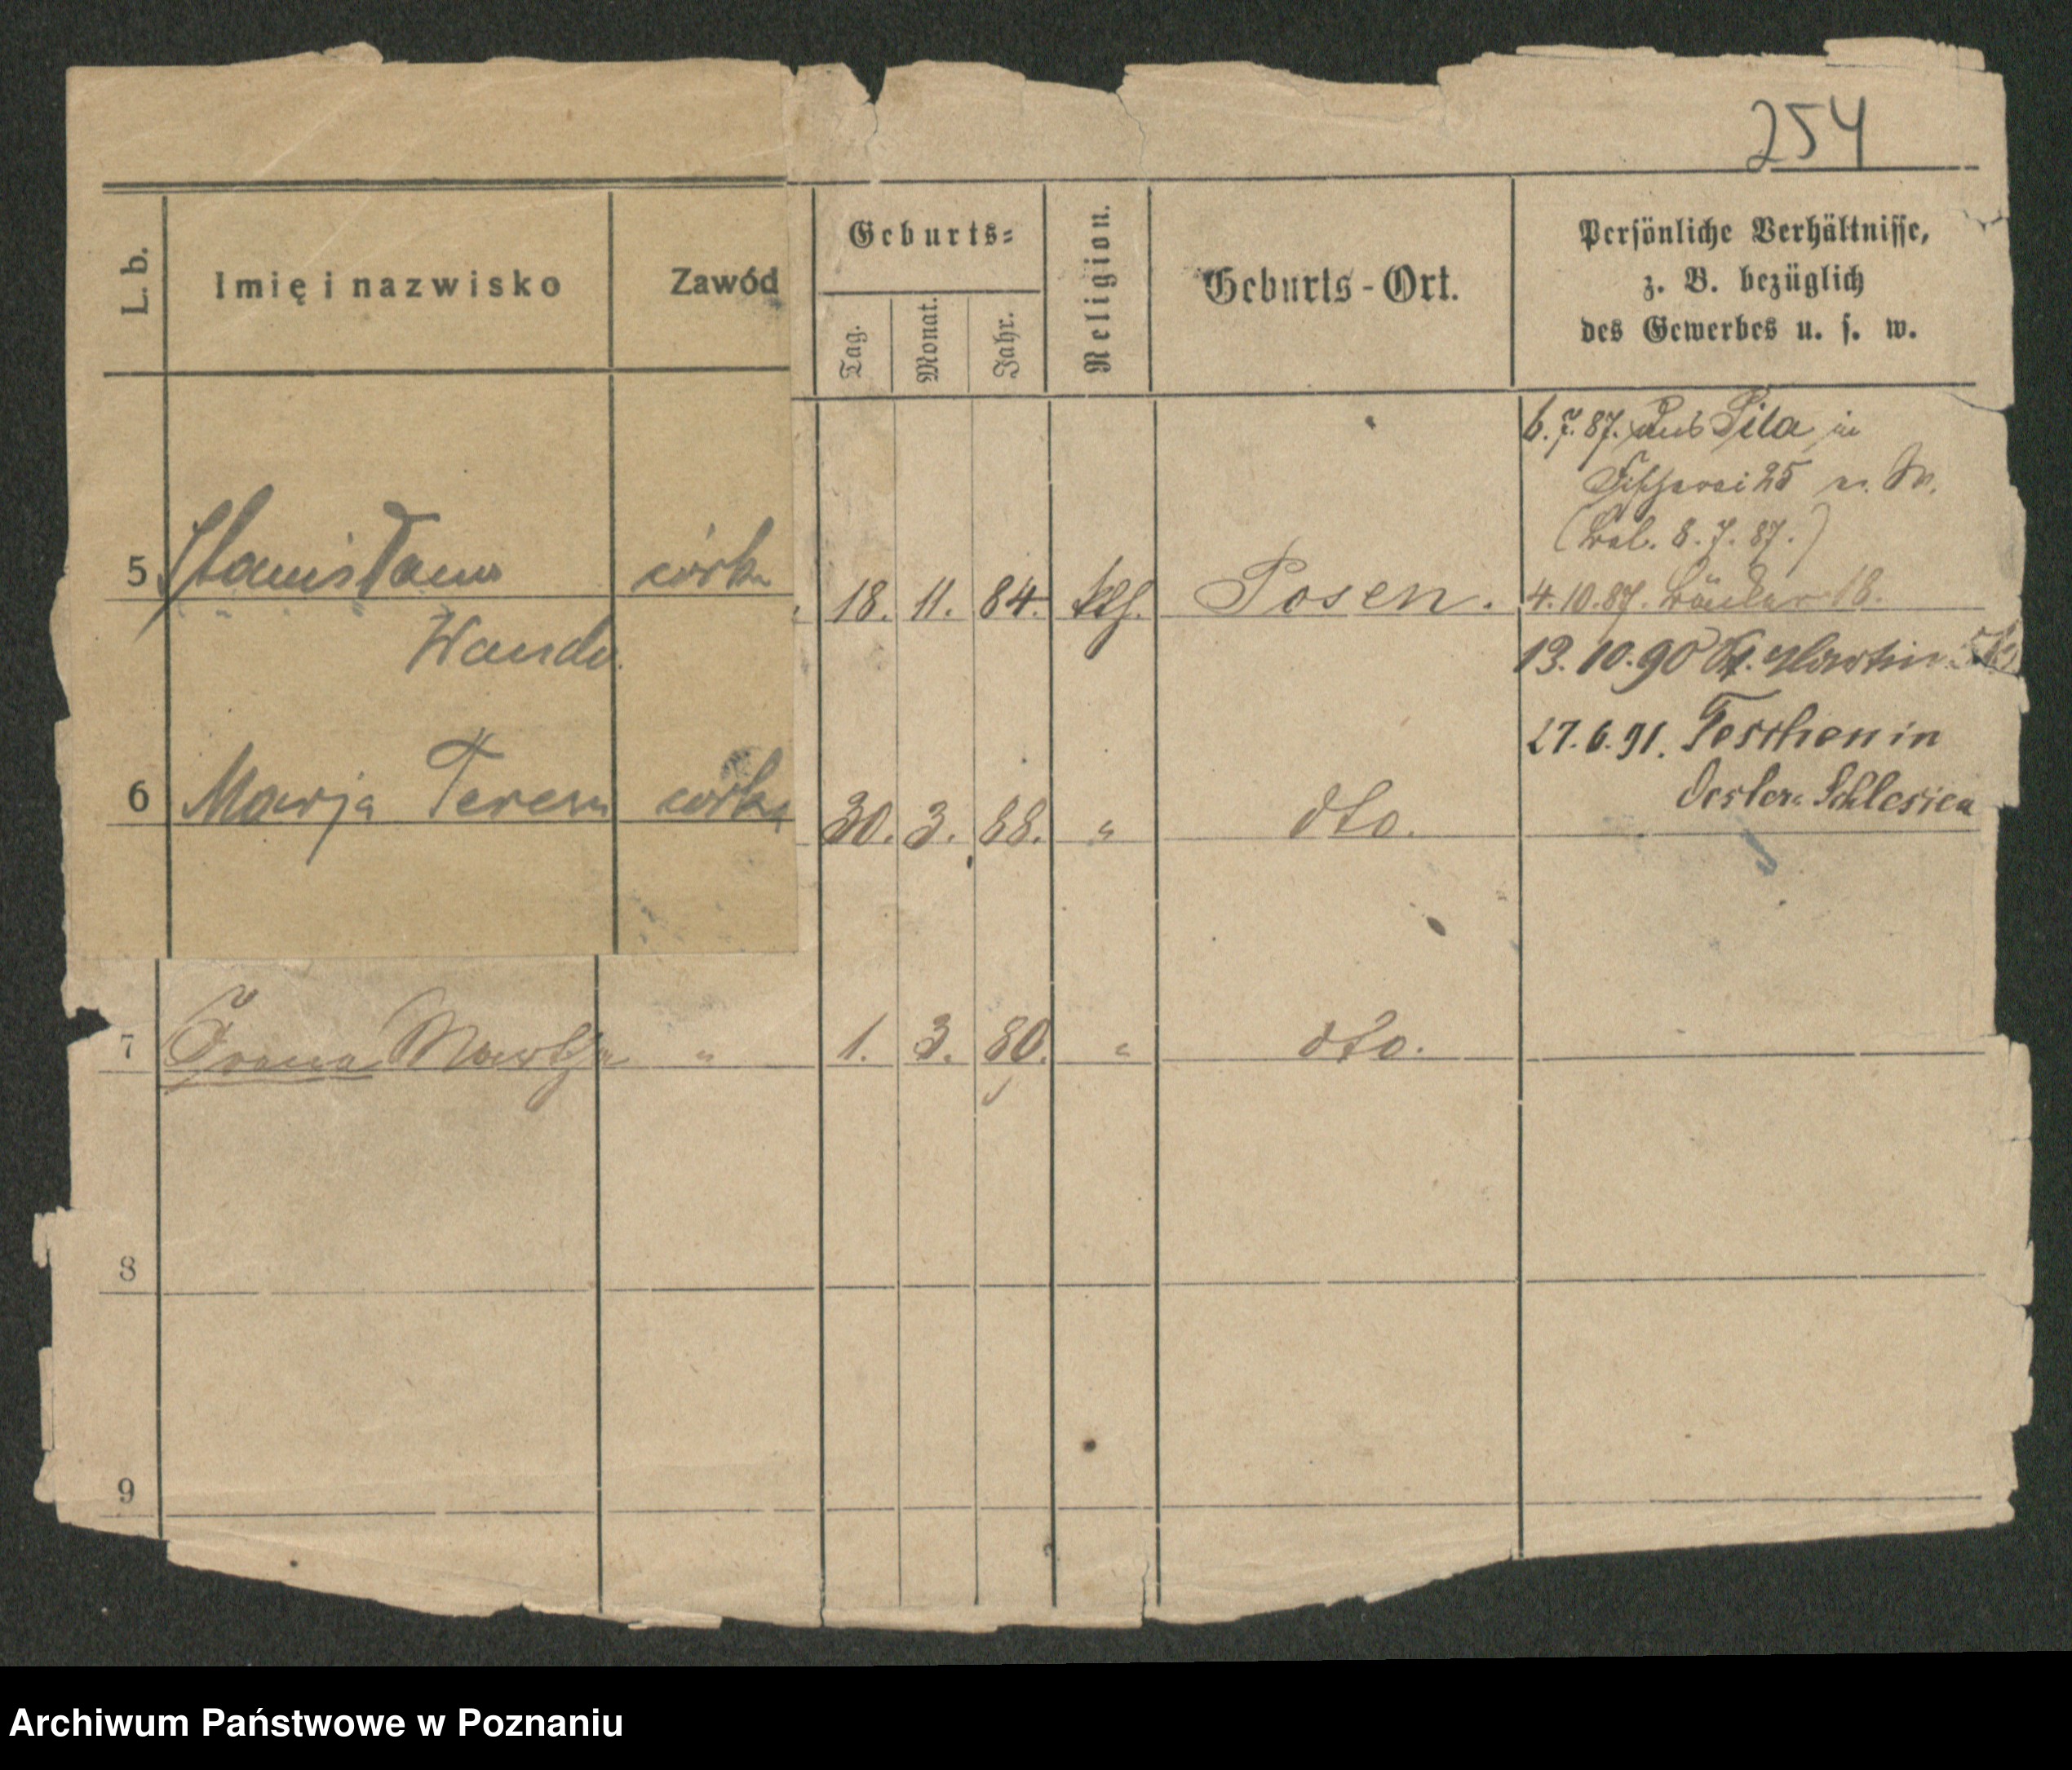 254
L. b.
Imię i nazwisko
Zawód
Geburts-
Tag.
Monat.
Jahr.
Religion.
Geburts-Ort.
Persönliche Verhältnisse,
z. B. bezüglich
des Gewerbes u. s. w.
6.7.87. aus Pila in
Fischerei 25
8.7.87.)
5 Stanisława córka 18. 11. 84. kth. Posen. 4.10.87. 18.
Wanda 13.10.90 St. Martin
27.6.91. Teschen in
Oesterr. Schlesien
6 Marja Teresa córka 30. 3. 88. " dto.
7 Irena " 1. 3. 80. " dto.
8
9
Archiwum Państwowe w Poznaniu